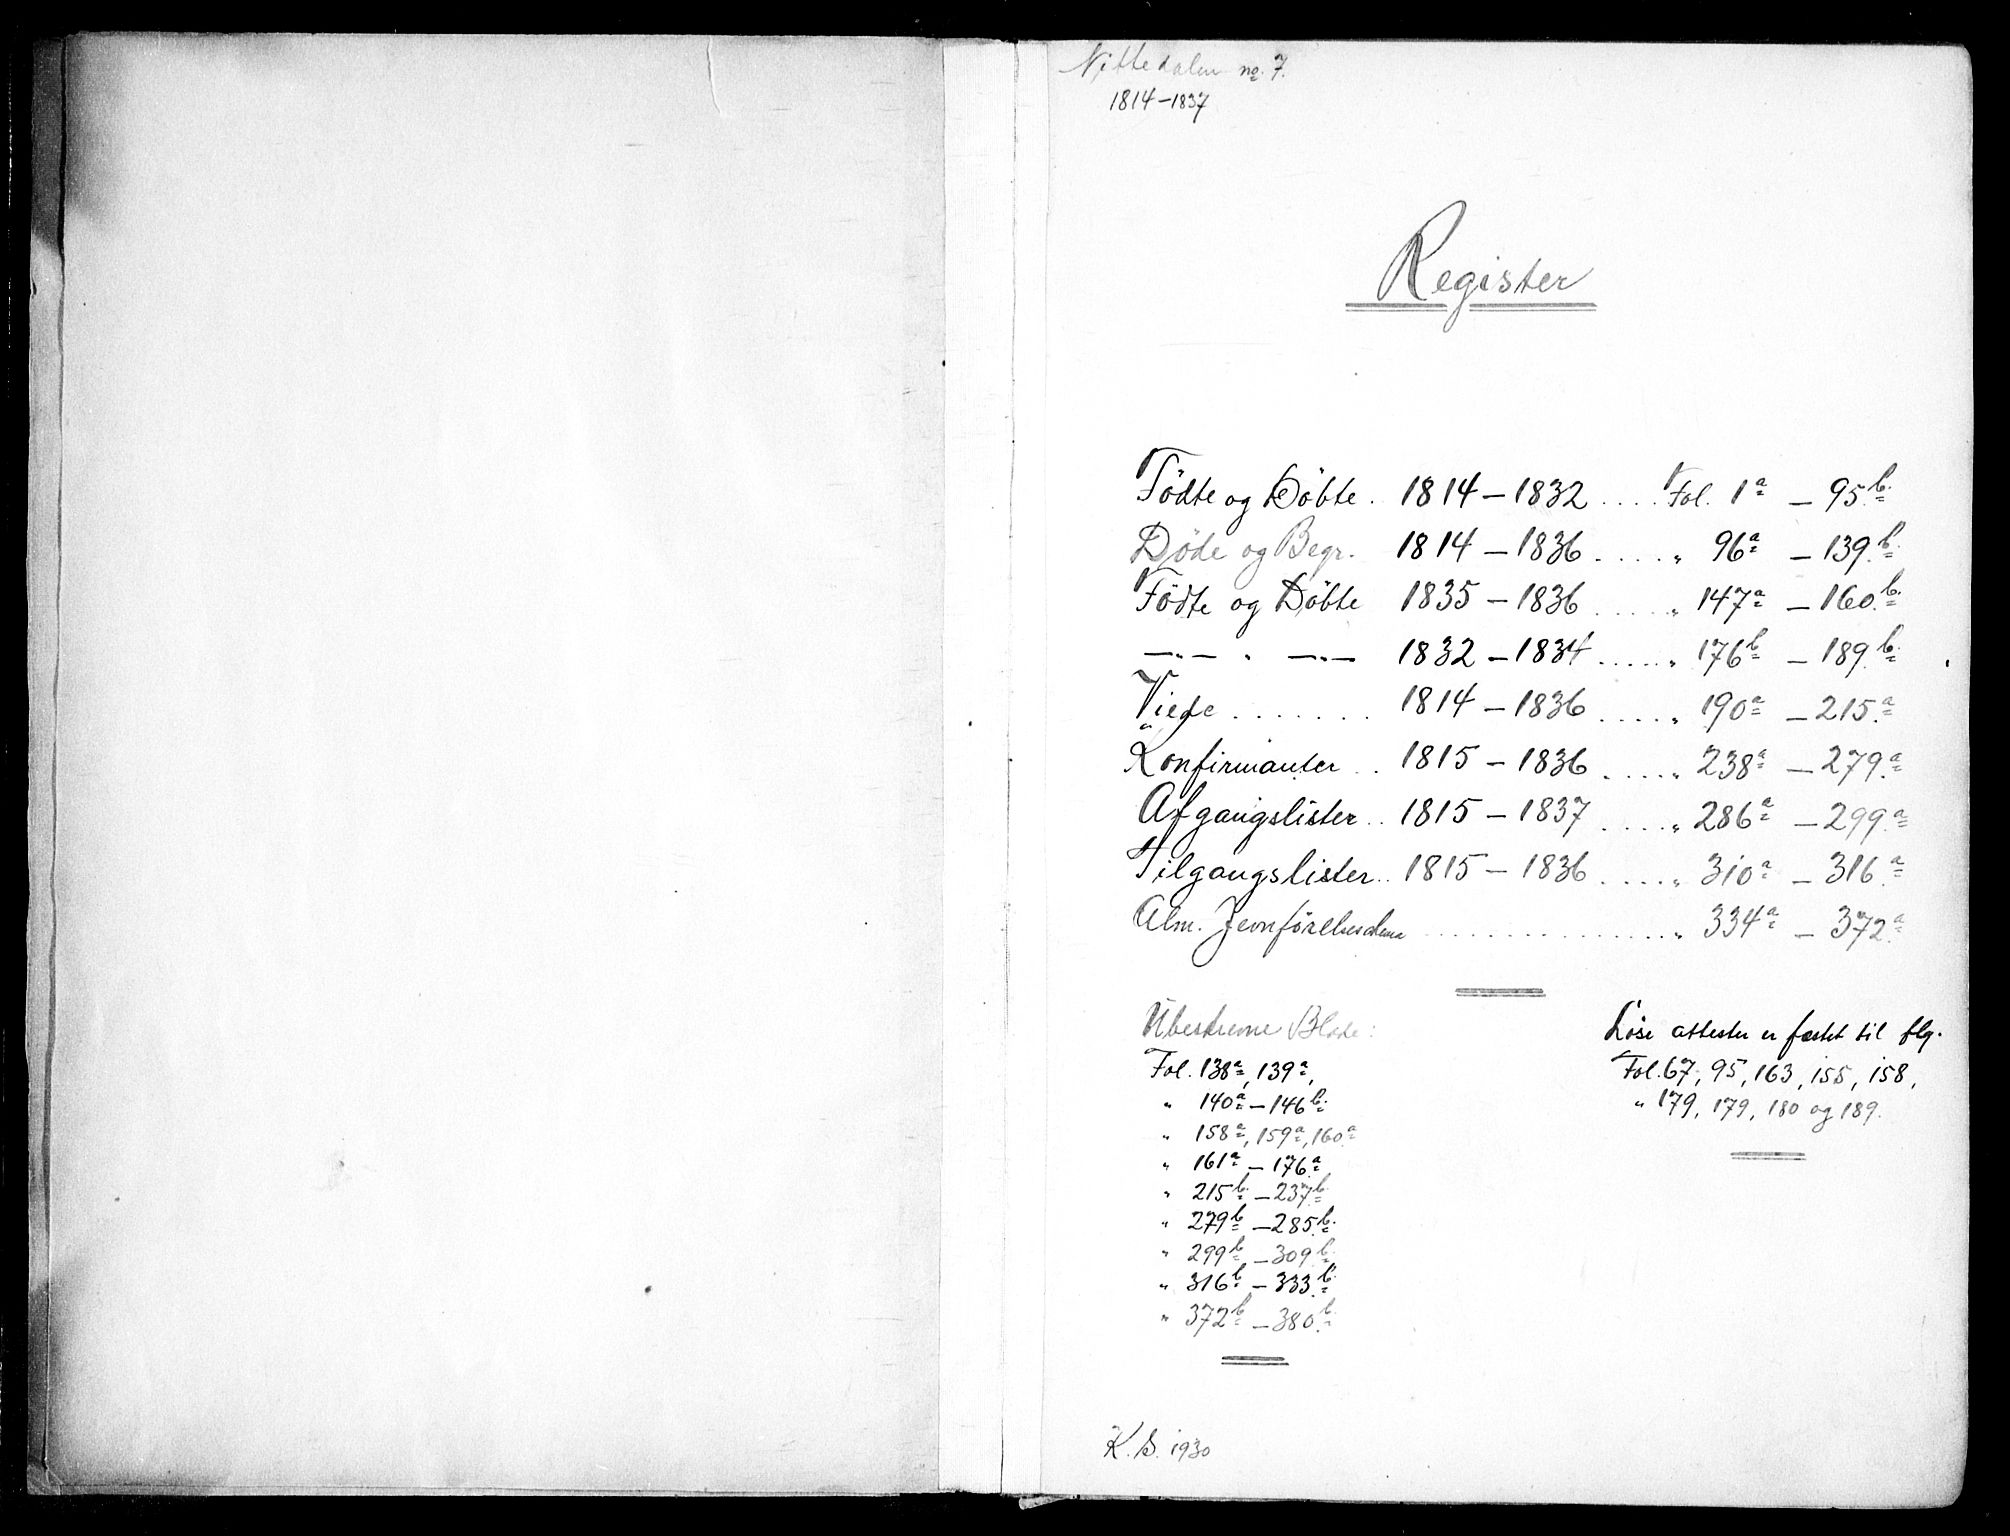 Nittedalen no. 7.
1814–1837
Register
Födte og Döbte . 1814 – 1832 .... Fol. 1a – 95b.
Döde og Begr. 1814 – 1836 .... " 96a – 139.b.
Födte og Döbte 1835 – 1836 .... " 147a – 160.b.
—"— " —"— 1832 – 1834 .... " 176b – 189.b.
Viede ....... 1814 – 1836 .... " 190a – 215.a
Konfirmanter .. 1815 – 1836 .... " 238a – 279.a
Afgangslister .. 1815 – 1837 .... " 286a – 299.a
Tilgangslister .. 1815 – 1836 .... " 310a – 316.a
Alm. Jevnförelses ............... " 334a – 372.a
Ubeskrevne Blade:
Fol. 138a, 139a,
" 140a – 146b.
" 158a, 159a, 160.a
" 161a – 176.a
" 215b. – 237b.
" 279b – 285.b.
" 299b – 309.b.
" 316b – 333.b.
" 372b – 380.b.
Löse attester er festet til flg.
Fol. 67, 95, 163, 155, 158,
" 179, 179, 180 og 189.
K. S. 1930